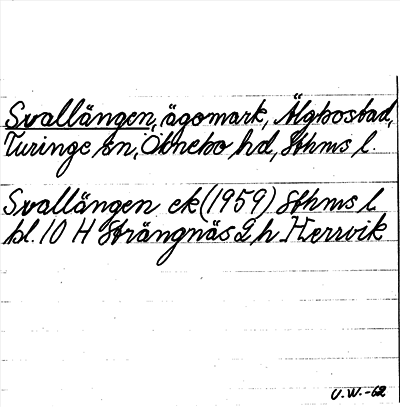 Svallängen, ägomark, Älgbostad,
Turinge sn, Öknebo hd, Sthms l.
Svallängen ek (1959) Sthms l
bl. 10 H Strängnäs 2 h Herrvik
U.W.-62